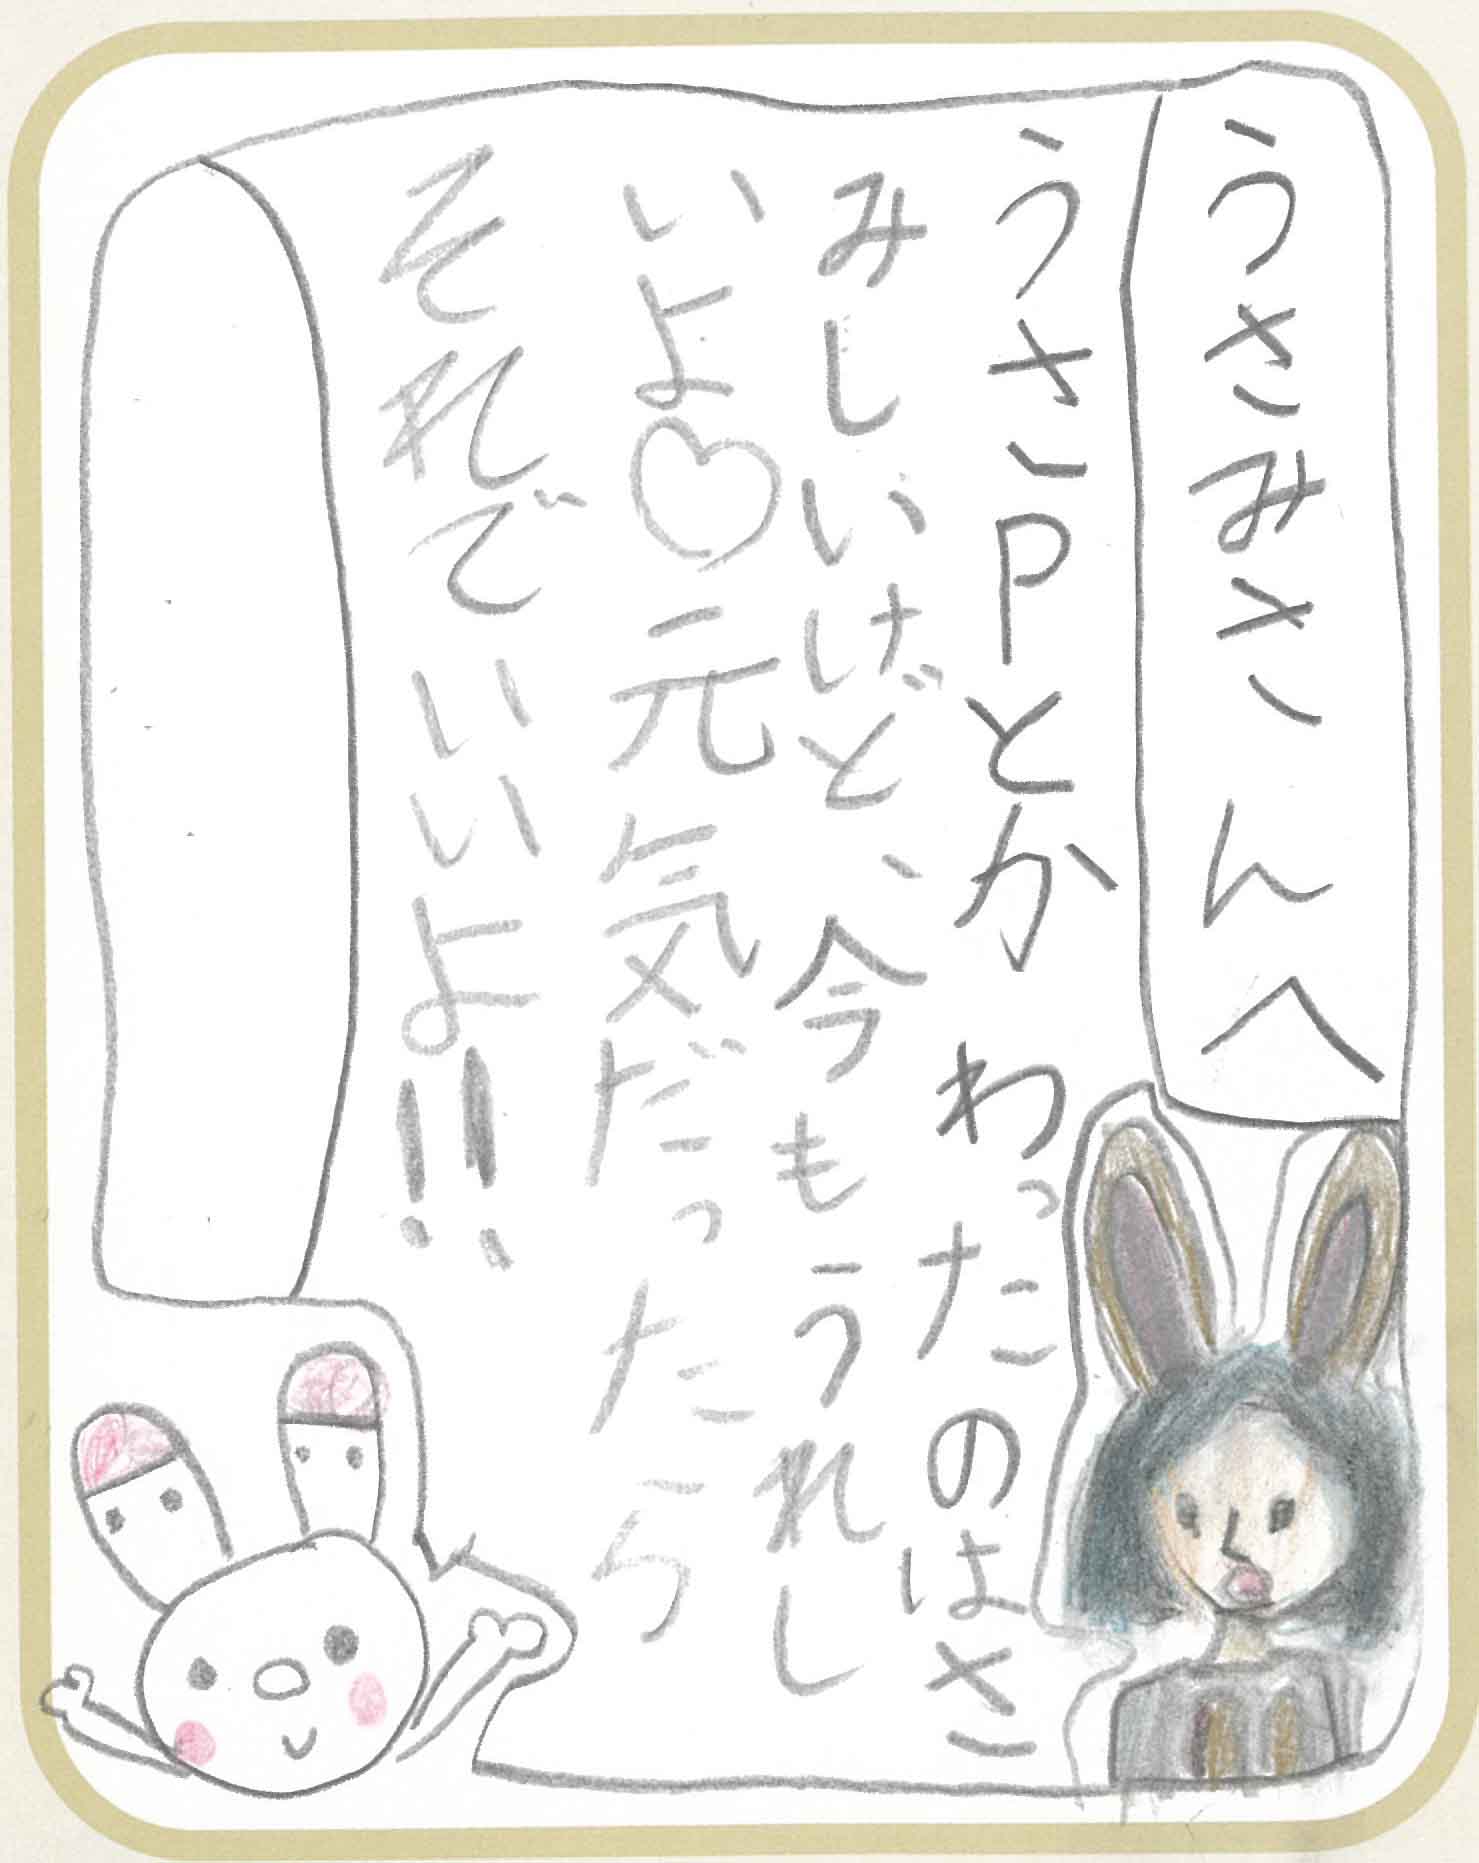 うさみさんへ
うさPとかわったのはさ
みしいけど、今もうれし
いよ♡元気だったら
それでいいよ!!